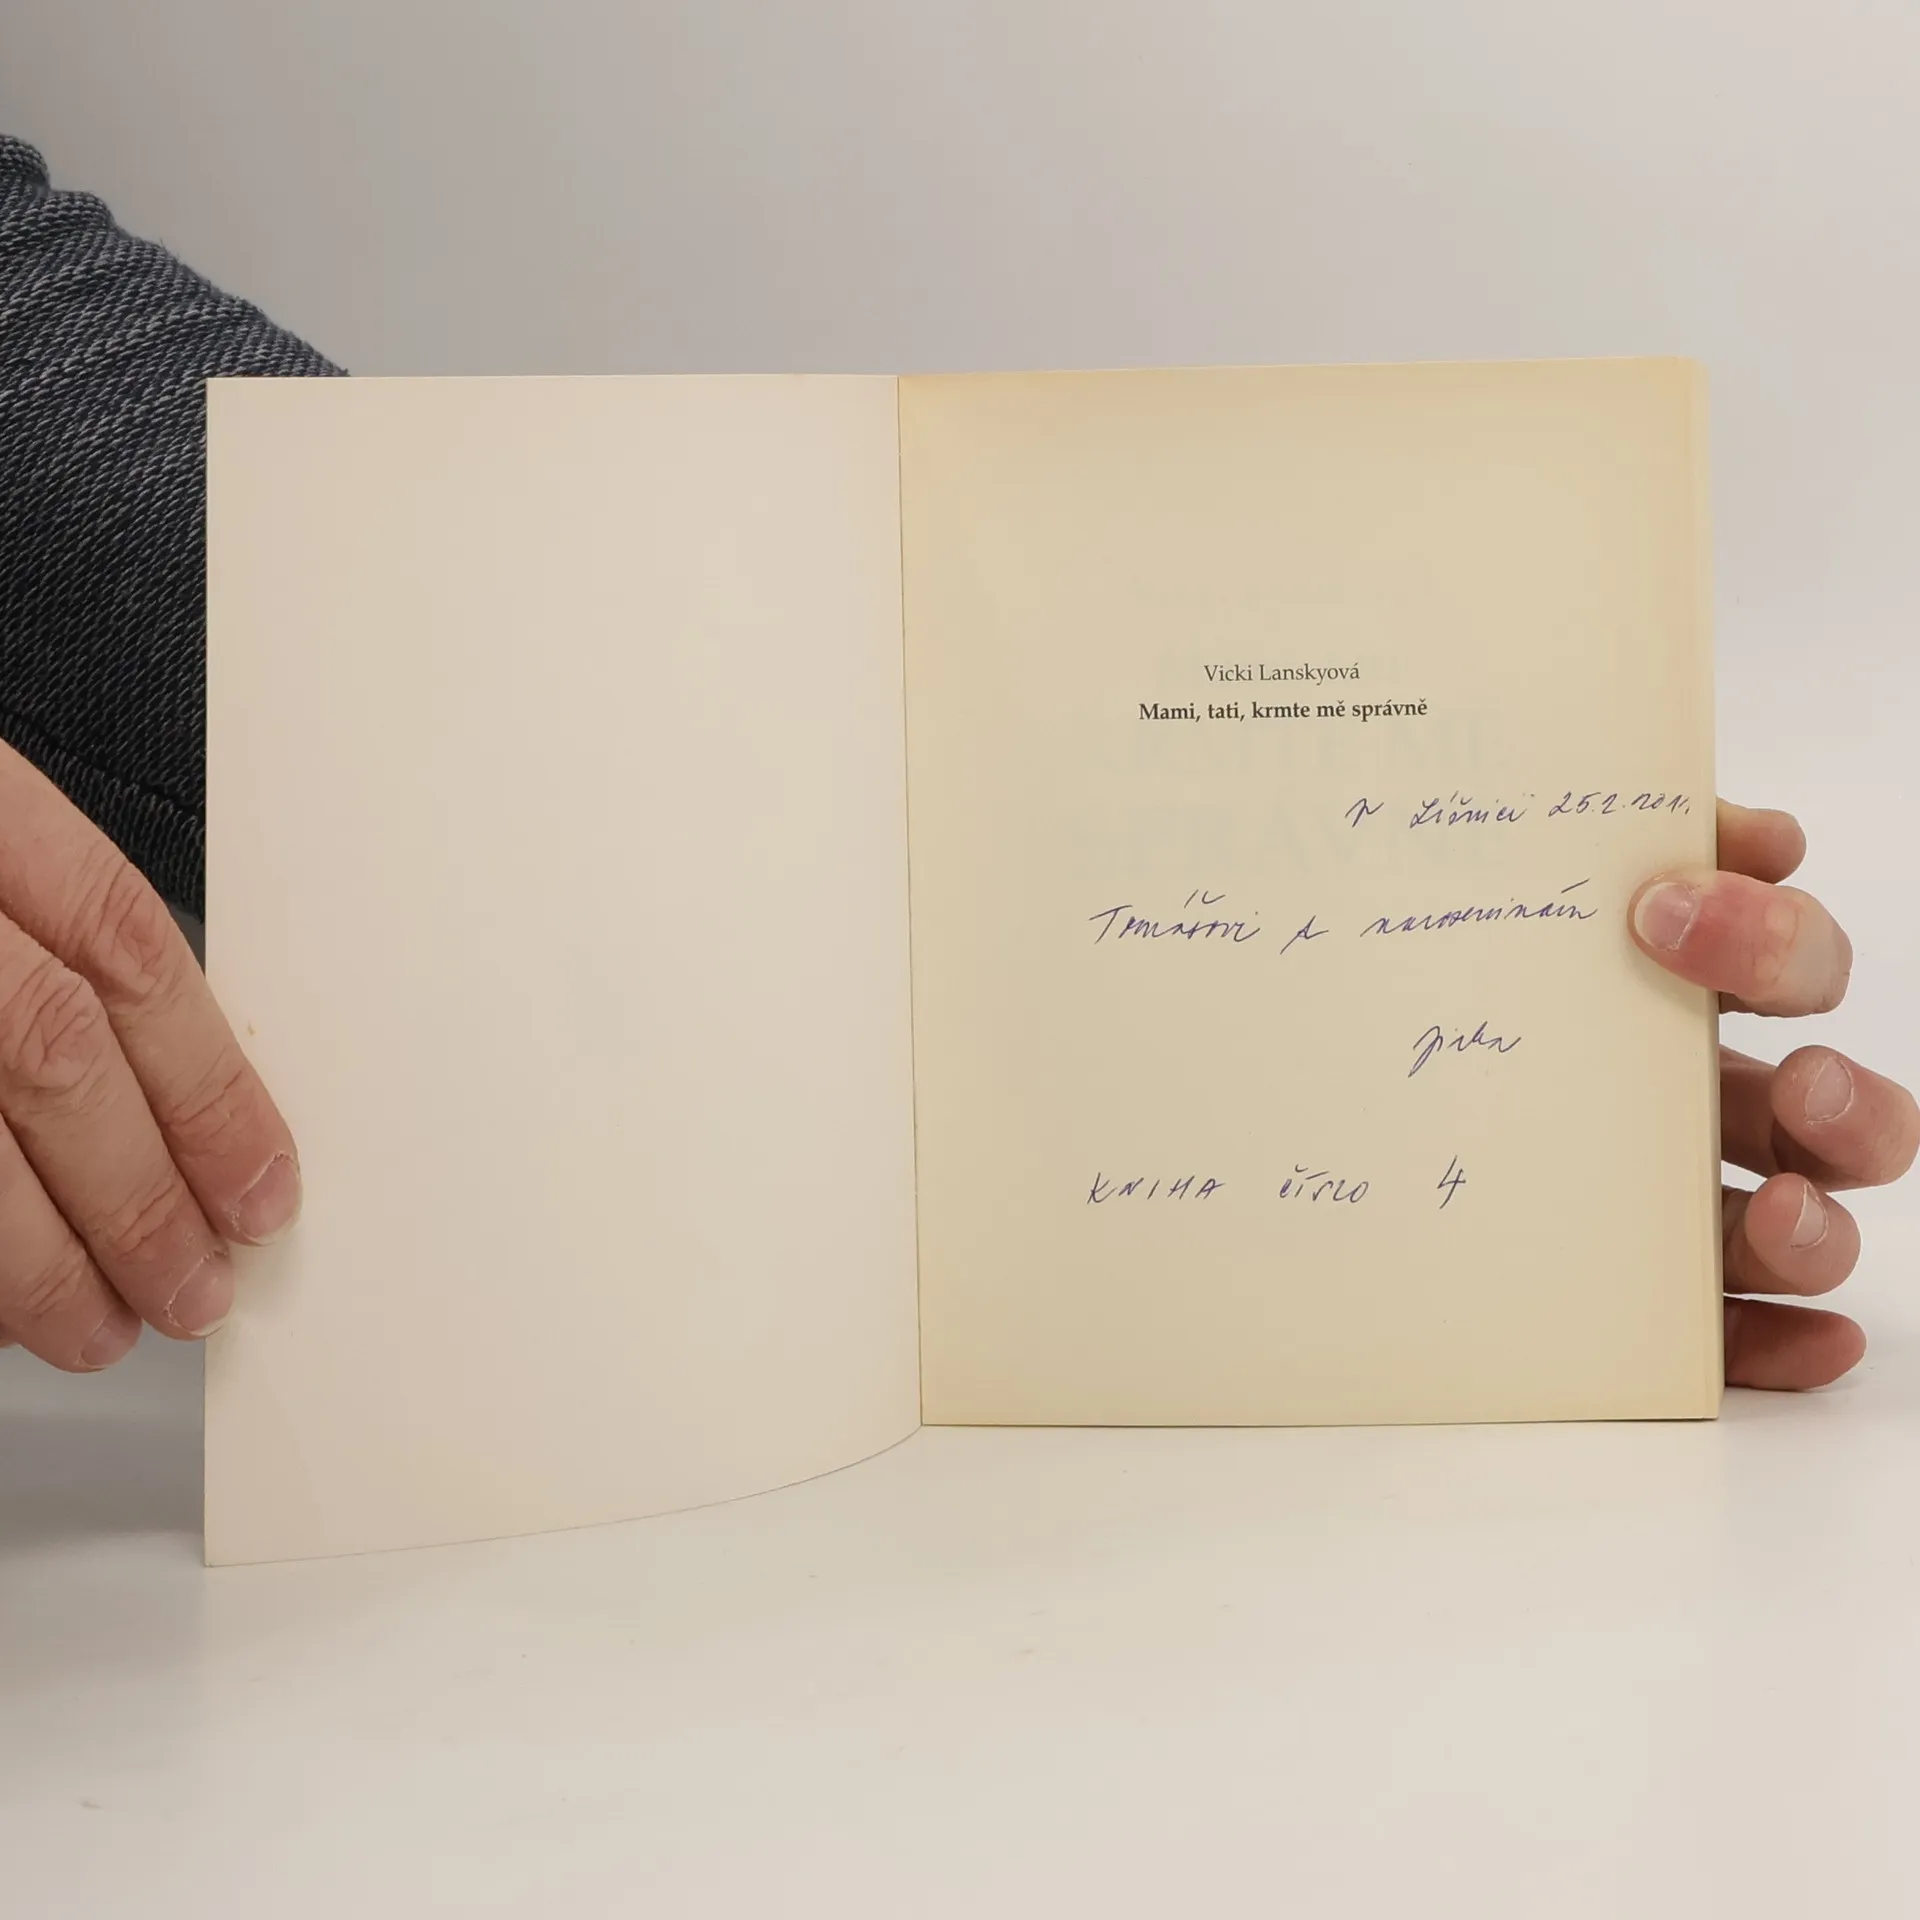 Vicki Lanskyová
Mami, tati, krmte mě správně
V Líšnici 25.2.2011
Tomášovi k narozeninám
Jirka
KNIHA ČÍSLO 4